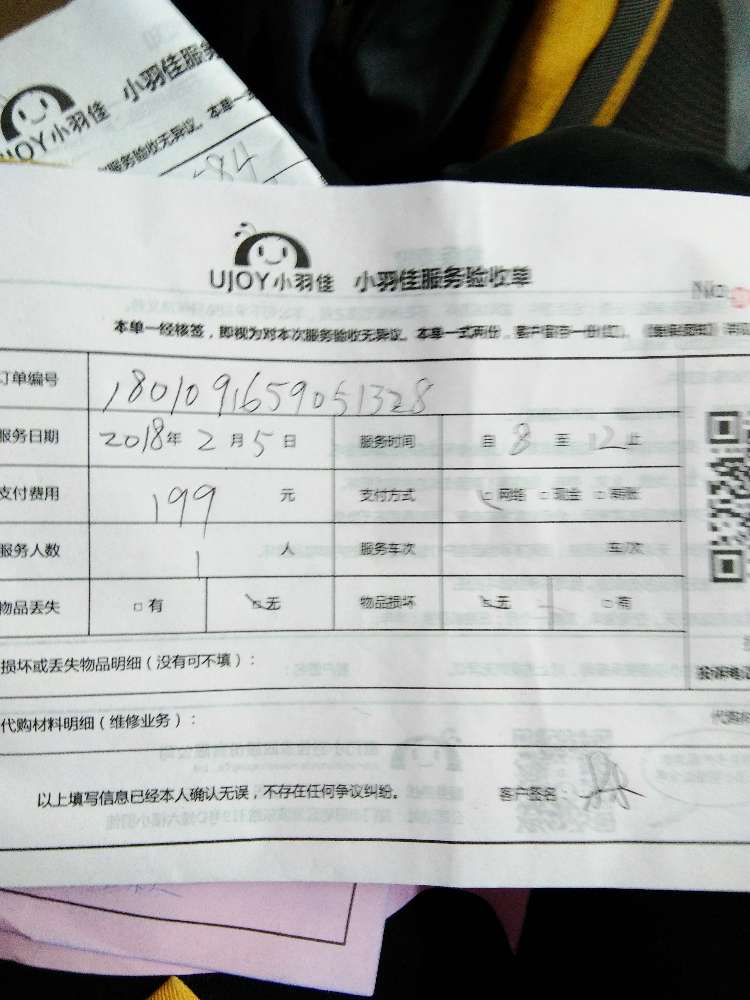 小羽佳 小羽佳服务
服务验收无异议。本单一
84
UJOY小羽佳 小羽佳服务验收单
本单一经核签，即视为对本次服务验收无异议。本单一式两份，客户留存一份(红)。
订单编号 1801091659051328
服务日期 2018年2月5日 服务时间 自8至12止
支付费用 199元 支付方式 □网络 □现金 □月账
服务人数 1人 服务车次 车/次
物品丢失 □有 □无 物品损坏 □无 □有
损坏或丢失物品明细（没有可不填）：
代购材料明细（维修业务）：
以上填写信息已经本人确认无误，不存在任何争议纠纷。 客户签名：